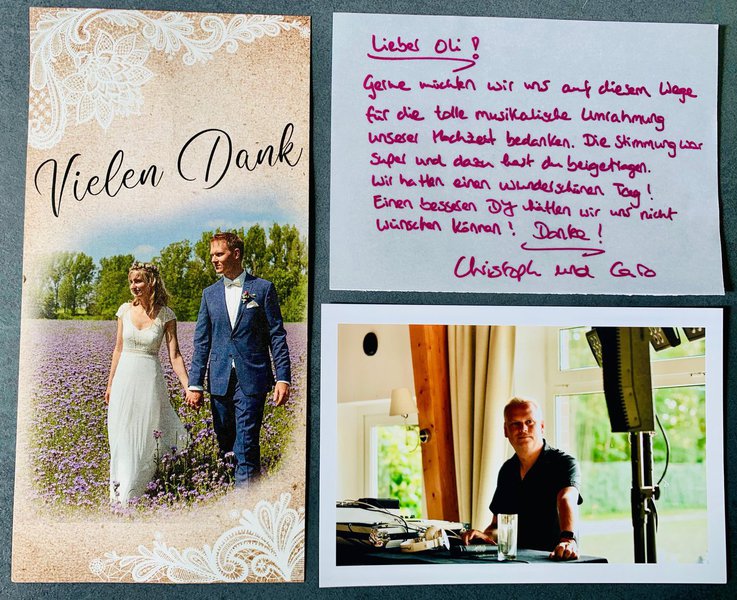 Vielen Dank
Lieber Oli!
Gerne möchten wir uns auf diesem Wege
für die tolle musikalische Umrahmung
unserer Hochzeit bedanken. Die Stimmung war
super und dazu hast du beigetragen.
Wir hatten einen wunderschönen Tag!
Einen besseren DJ hätten wir uns nicht
wünschen können! Danke!
Christoph und Caro